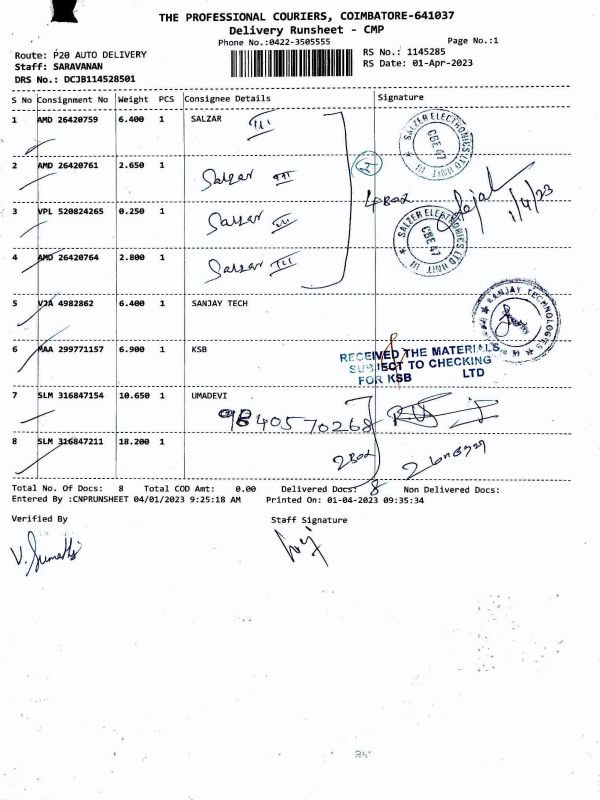 THE PROFESSIONAL COURIERS, COIMBATORE-641037
Delivery Runsheet - CMP
Phone No.:0422-3505555
Page No.:1
Route: P20 AUTO DELIVERY
RS No.: 1145285
Staff: SARAVANAN
RS Date: 01-Apr-2023
DRS No.: DCJB114528501
S No Consignment No Weight PCS Consignee Details Signature
1 AMD 26420759 6.400 1 SALZAR III
SALZER ELECTRONICS LTD UNIT III CBE 47
2 AMD 26420761 2.650 1 Salzar III
4 Box
1/4/23
3 VPL 520824265 0.250 1 Salzar III
SALZER ELECTRONICS LTD UNIT III CBE 47
4 AMD 26420764 2.800 1 Salzar III
5 VJA 4982862 6.400 1 SANJAY TECH
SANJAY TECHNOLOGIES
6 MAA 299771157 6.900 1 KSB
RECEIVED THE MATERIALS
SUBJECT TO CHECKING
FOR KSB LTD
7 SLM 316847154 10.650 1 UMADEVI
9840570268
8 SLM 316847211 18.200 1
2 Box
Total No. Of Docs: 8 Total COD Amt: 0.00 Delivered Docs: 8 Non Delivered Docs:
Entered By :CNPRUNSHEET 04/01/2023 9:25:18 AM Printed On: 01-04-2023 09:35:34
Verified By
Staff Signature
V. Sumathi